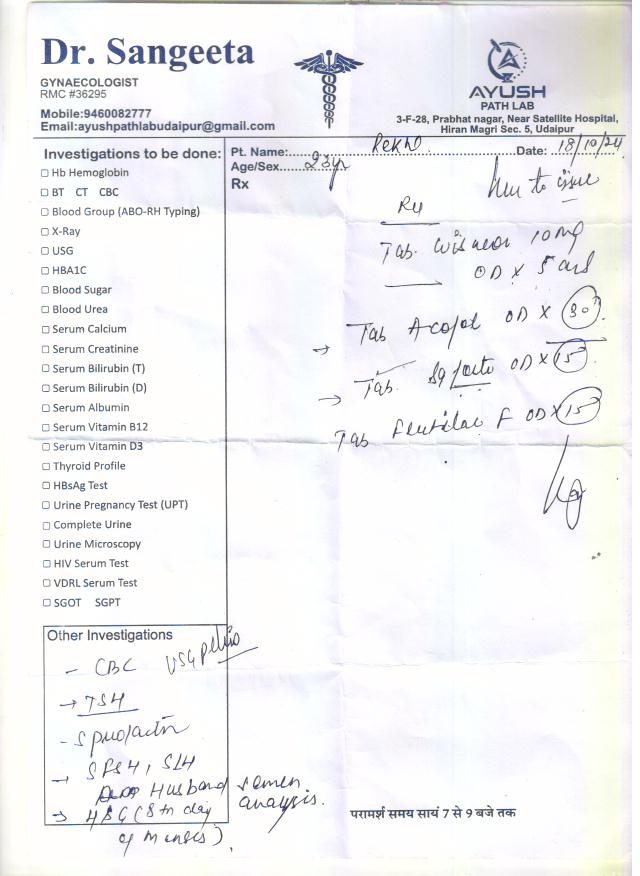 Dr. Sangeeta
GYNAECOLOGIST
RMC #36295
Mobile:9460082777
Email:ayushpathlabudaipur@gmail.com
AYUSH
PATH LAB
3-F-28, Prabhat nagar, Near Satellite Hospital,
Hiran Magri Sec. 5, Udaipur
Investigations to be done:
Hb Hemoglobin
BT CT CBC
Blood Group (ABO-RH Typing)
X-Ray
USG
HBA1C
Blood Sugar
Blood Urea
Serum Calcium
Serum Creatinine
Serum Bilirubin (T)
Serum Bilirubin (D)
Serum Albumin
Serum Vitamin B12
Serum Vitamin D3
Thyroid Profile
HBsAg Test
Urine Pregnancy Test (UPT)
Complete Urine
Urine Microscopy
HIV Serum Test
VDRL Serum Test
SGOT SGPT
Other Investigations
- CBC USG pelvis
→ TSH
- S prolactin
→ S FSH, S LH
Husband semen
analysis.
→ HSG (8th day
of menses).
Pt. Name:...... Date: 18/10/24
Age/Sex......23yr
Rx
to issue
Tab. 10mg
OD X 5
→ Tab OD X 30
→ Tab. forte OD X 15
Tab F OD X 15
परामर्श समय सायं 7 से 9 बजे तक